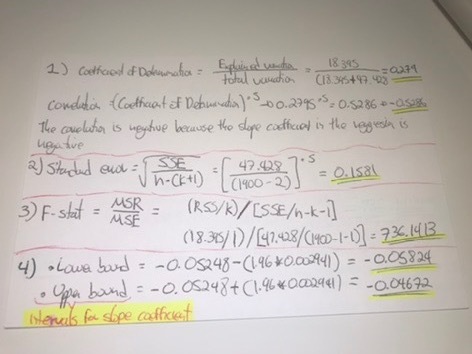 1.) Coefficient of Determination = Explained variation / total variation = 18.395 / (18.395+47.428 = 0.279
Correlation = (Coefficient of Determination)^.5 → 0.2795^.5 = 0.5286 → -0.5286
The correlation is negative because the slope coefficient in the regression is
negative
2.) Standard error = √SSE / n-(k+1) = [47.428 / (1900-2)]^.5 = 0.1581
3) F-stat = MSR / MSE = (RSS/k) / [SSE/n-k-1]
(18.395/1) / [47.428/(1900-1-1)] = 736.1413
4) • Lower bound = -0.05248-(1.96*0.002941) = -0.05824
• Upper bound = -0.05248+(1.96*0.002941) = -0.04672
Intervals for slope coefficient